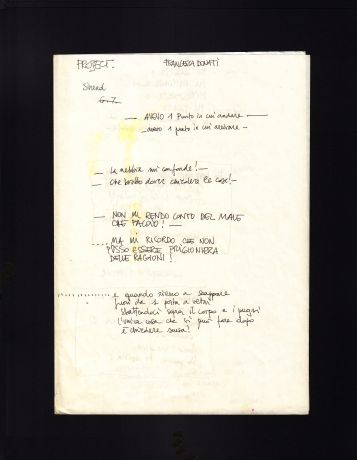 PROJECT.
FRANCESCA DONATI
Strand
G.7
— AVEVO 1 Punto in cui andare —
— avevo 1 punto in cui restare —
— La nebbia mi confonde! —
— Che brutto dover chiedere le cose! —
— NON MI RENDO CONTO DEL MALE
CHE FACCIO! —
MA MI RICORDO CHE NON
POSSO ESSERE PRIGIONIERA
DELLE RAGIONI!
e quando riesco a scappare
fuori da 1 porta a vetri
sbattendoci sopra il corpo e i pugni
l'unica cosa che si può fare dopo
è chiedere scusa!